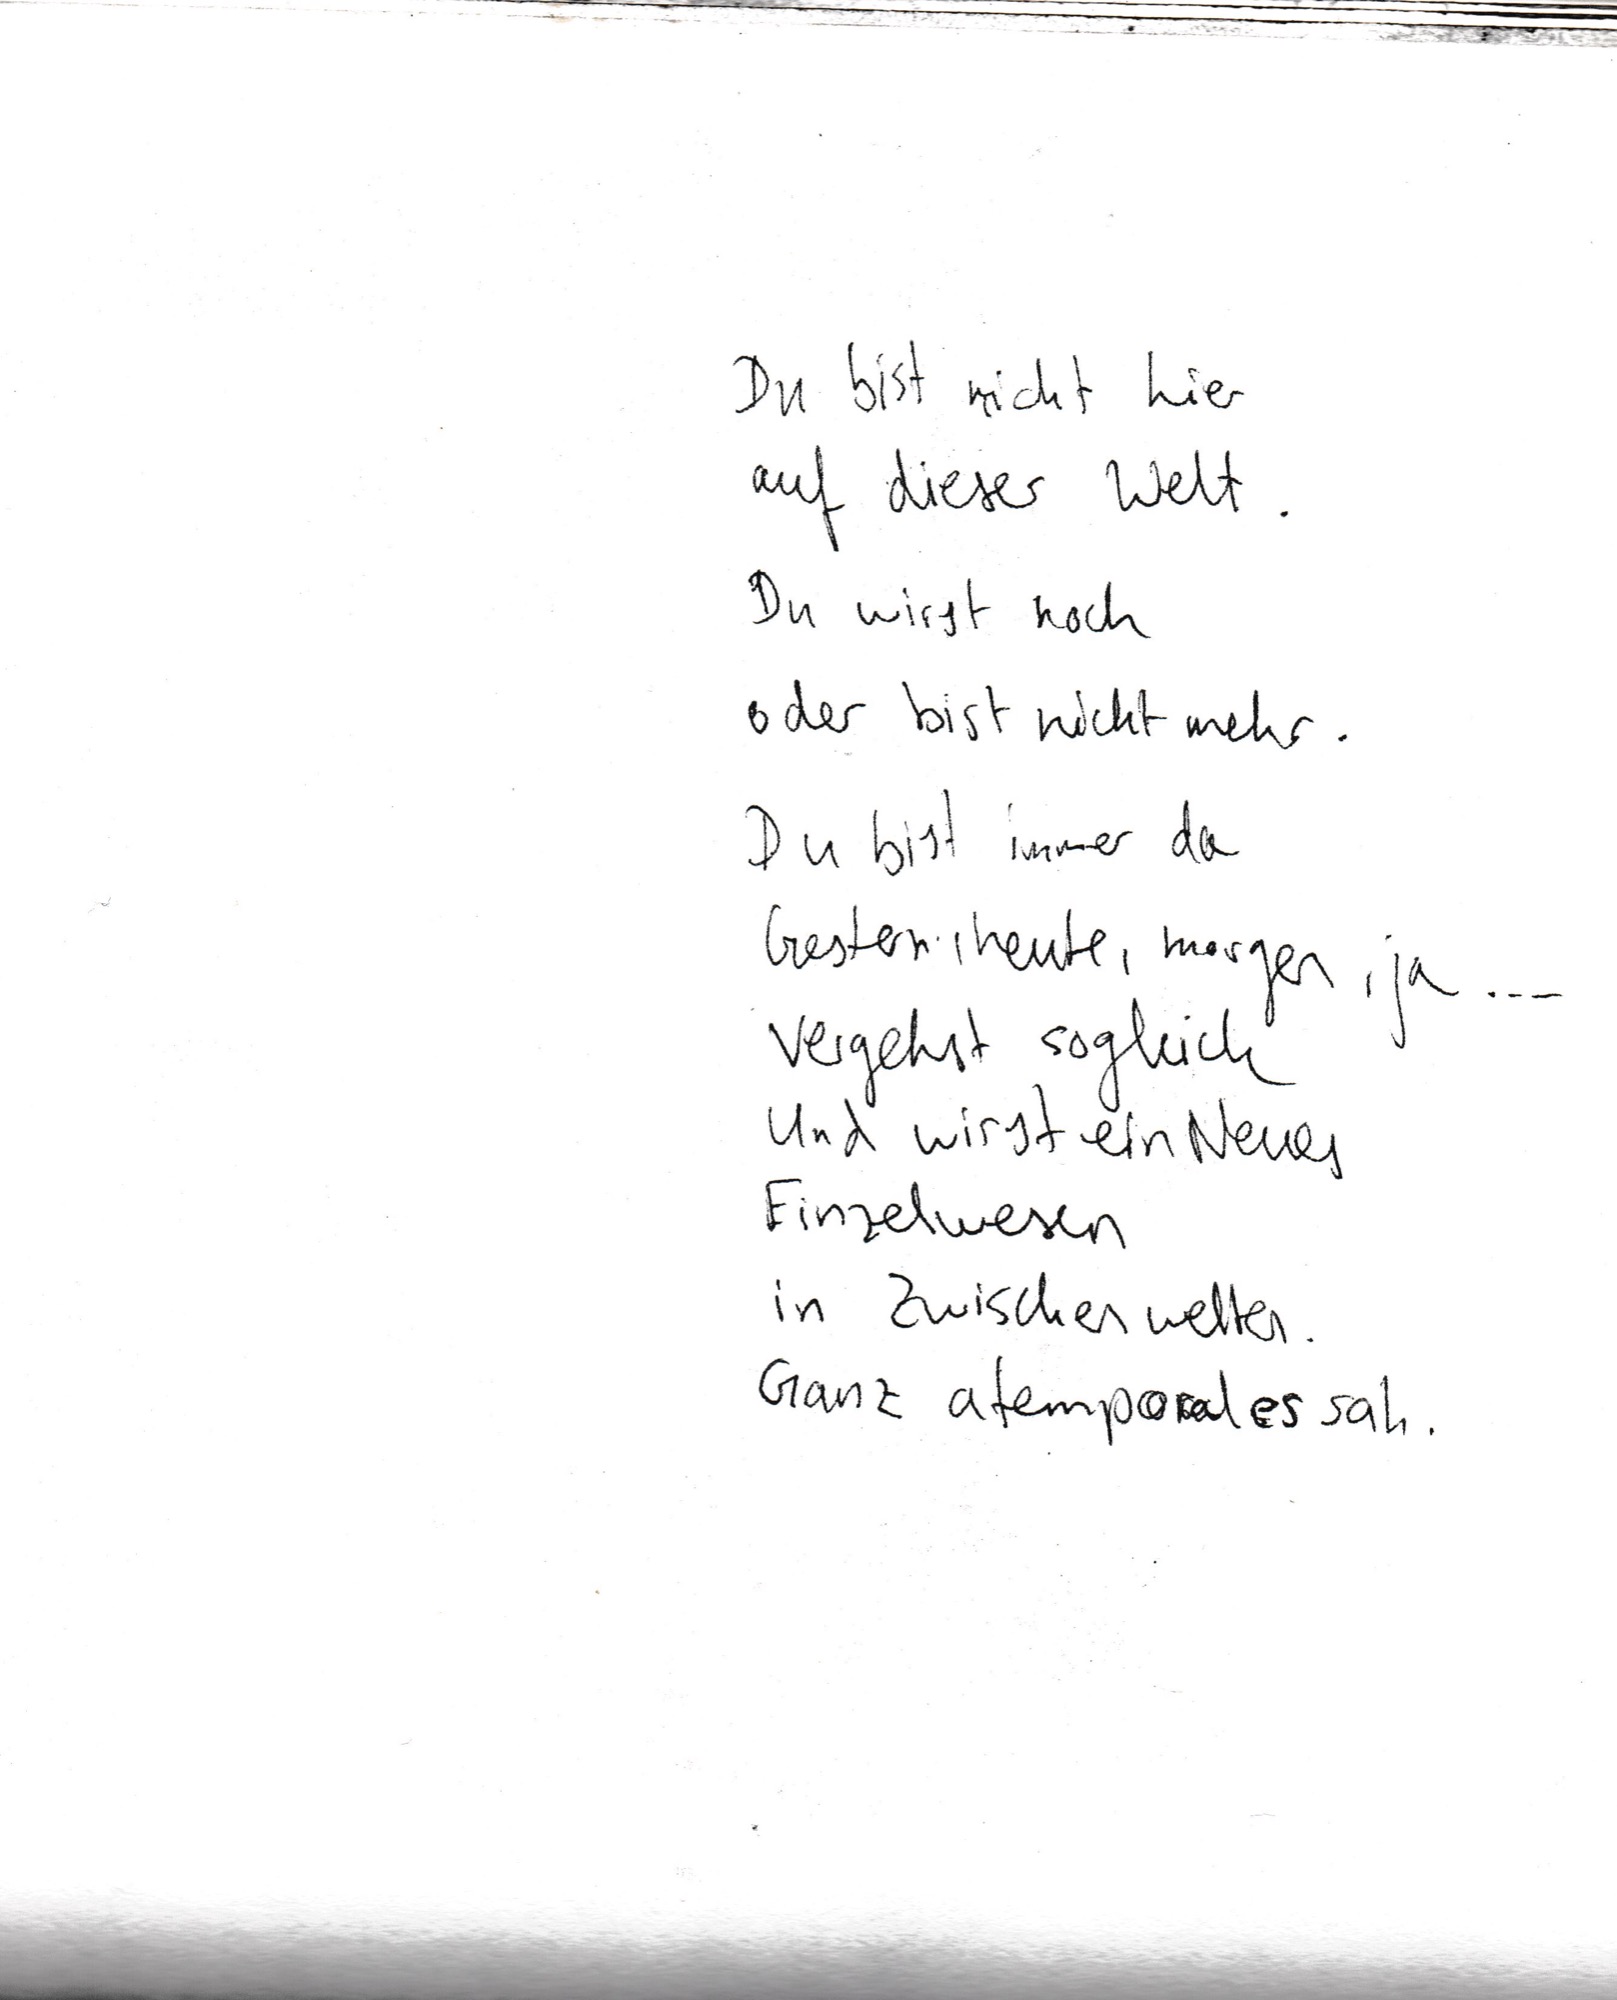 Du bist nicht hier
auf dieser Welt.
Du wirst noch
oder bist nicht mehr.
Du bist immer da
Gestern, heute, morgen, ja ...
Vergehst sogleich
Und wirst ein Neues
Einzelwesen
in Zwischenwelten.
Ganz atemporal es sah.